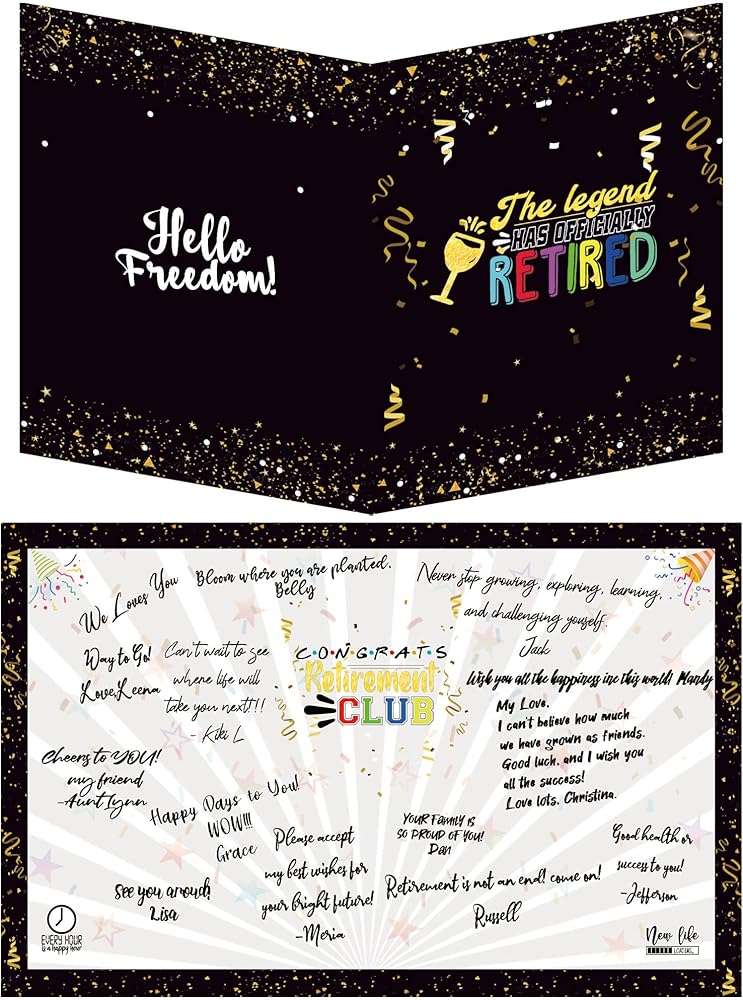 Hello
Freedom!
The legend
HAS OFFICIALLY
RETIRED
We Loves You
Bloom where you are planted.
Belly
Never stop growing, exploring, learning,
and challenging youself.
Jack
Way to Go!
Love, Leena
Can't wait to see
whene life will
take you next!!!
- Kiki L
CONGRATS
Retirement
CLUB
Wish you all the happiness inc this world! Mandy
My Love.
I can't believe how much
we have grown as friends.
Good luck. and I wish you
all the success!
Love lots, Christina.
Cheers to YOU!
my friend
-Aunt Lynn
Happy Days to You!
WOW!!!
Grace
Please accept
my best wishes for
your bright future!
-Meria
YOUR FAMILY IS
SO PROUD OF YOU!
Dan
Good health or
success to you!
-Jefferson
See you arouch
Lisa
Retirement is not an end! come on!
Russell
EVERY HOUR
is a happy hour
New life
LOADING...